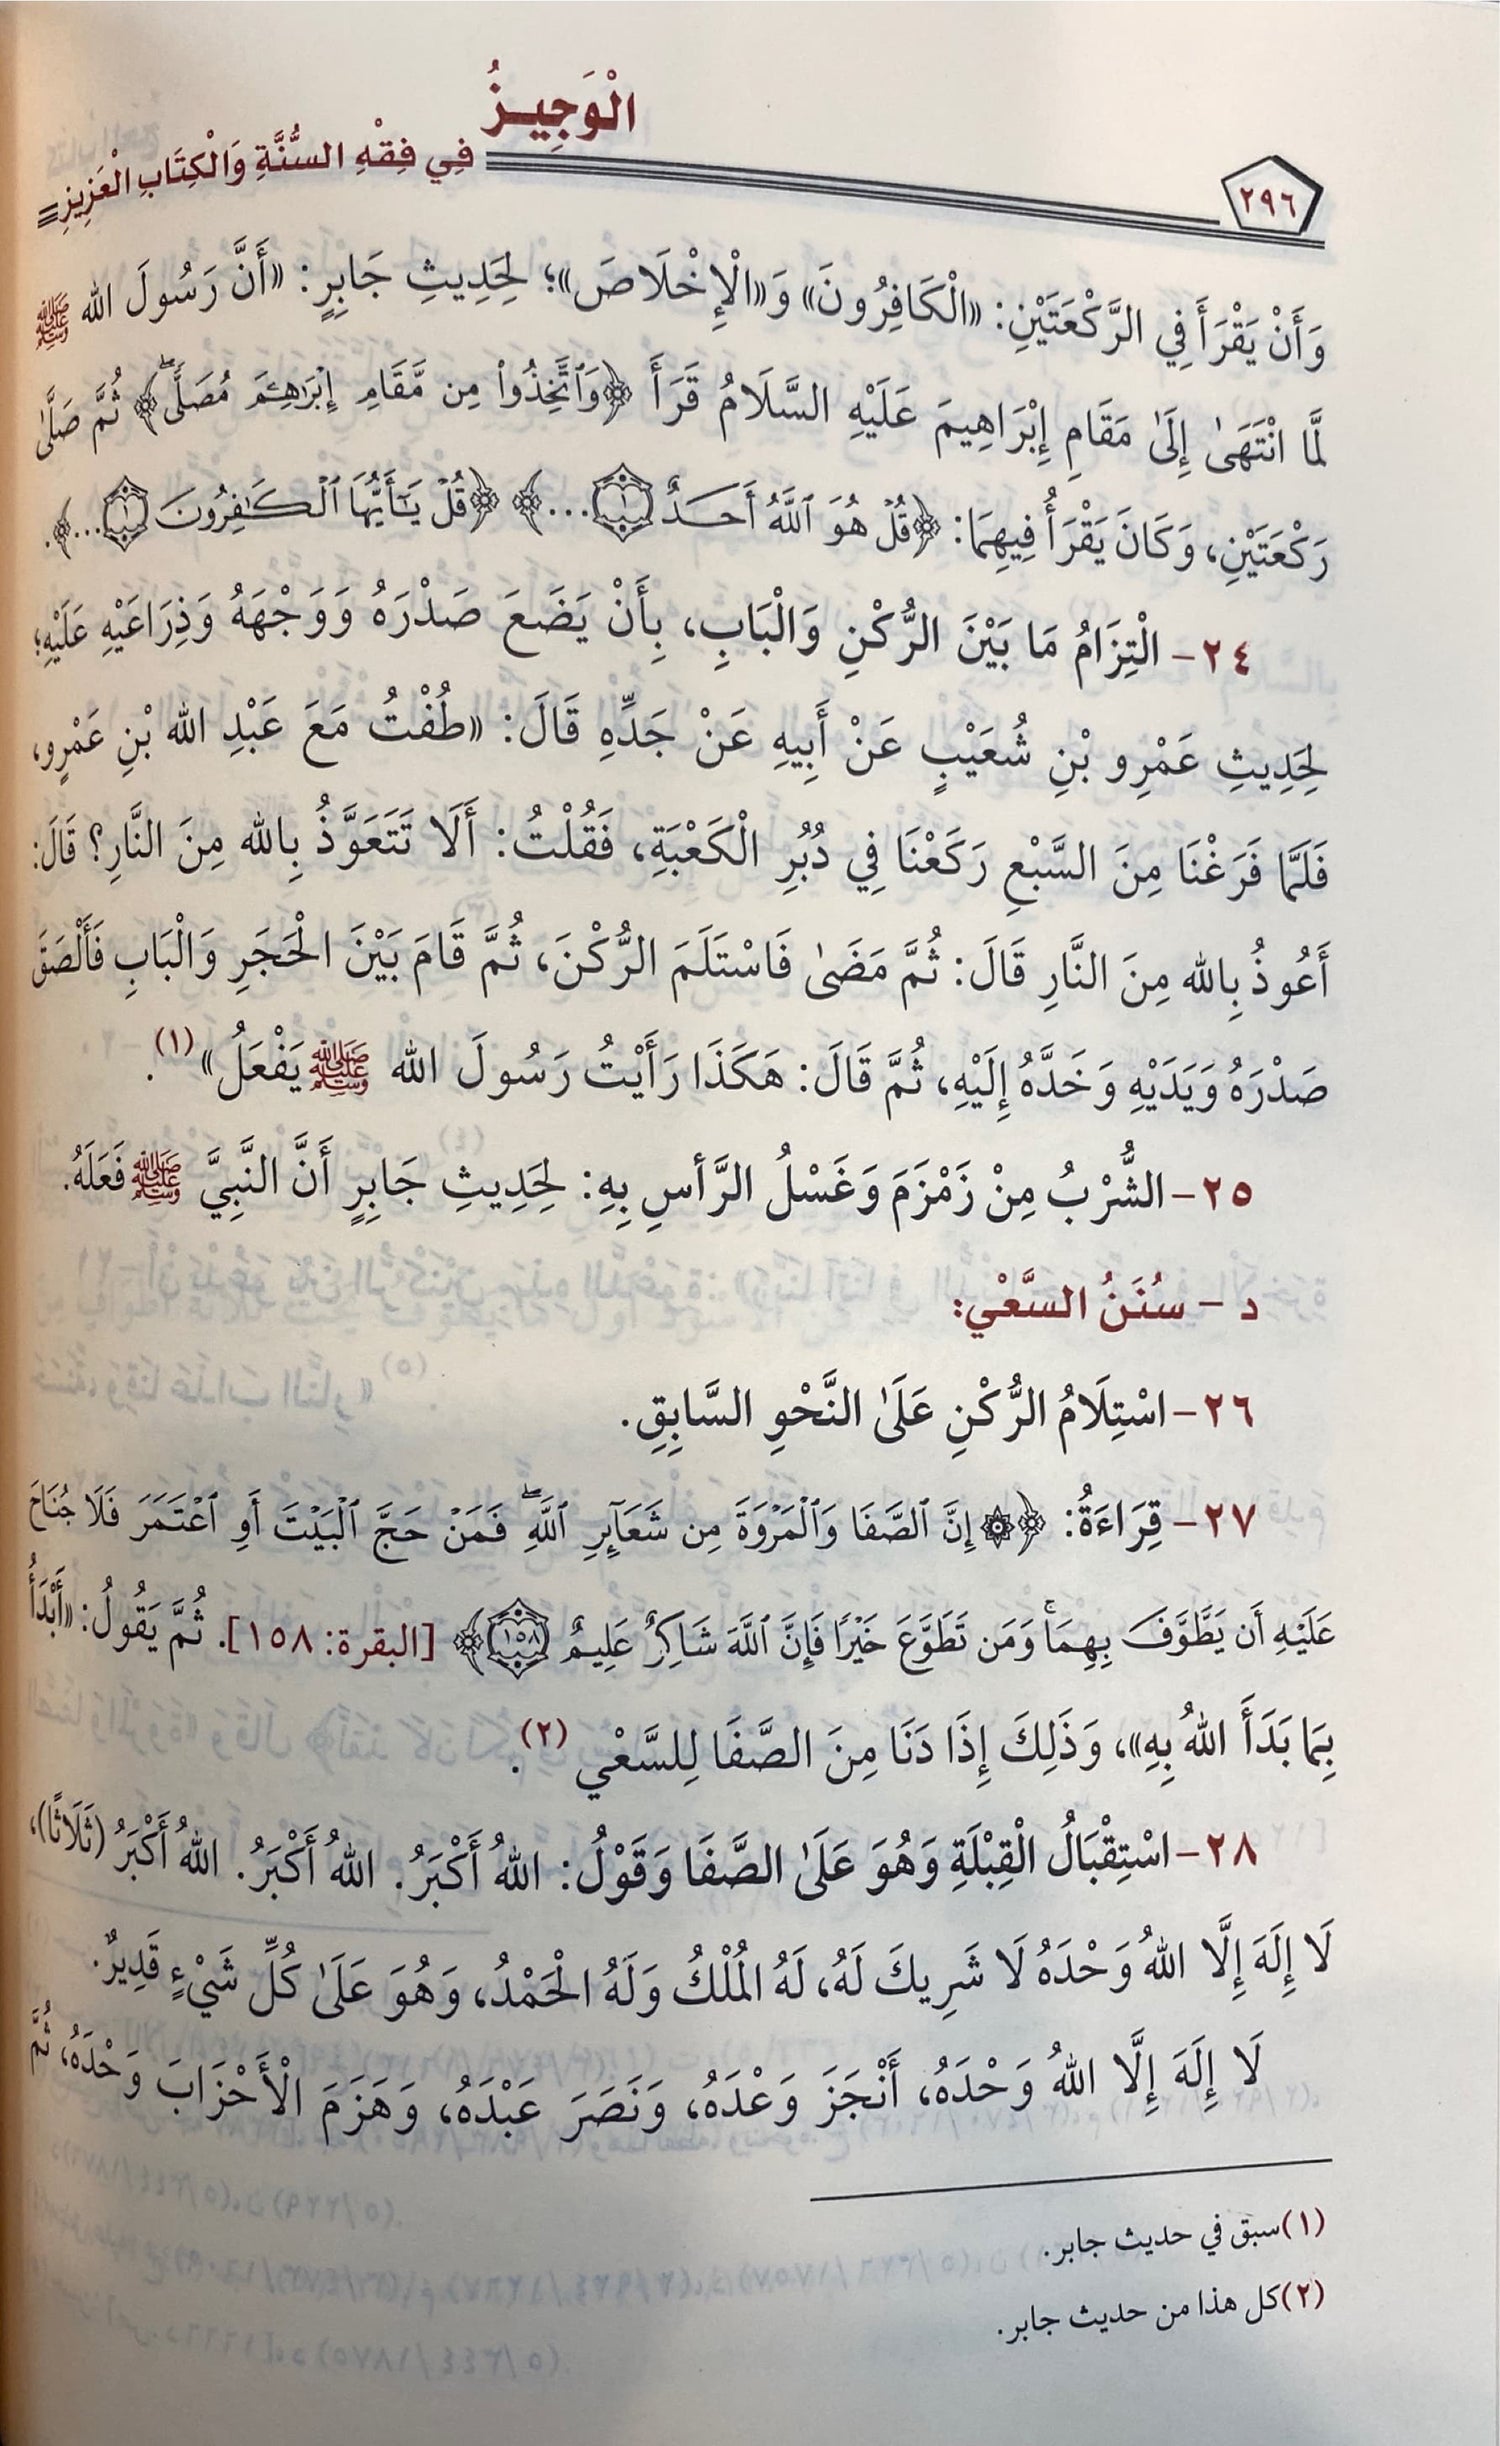 الْوَجِيـزُ
فِي فِقْهِ السُّنَّةِ وَالْكِتَابِ الْعَزِيزِ
٢٩٦
وَأَنْ يَقْرَأَ فِي الرَّكْعَتَيْنِ: «الْكَافِرُونَ» وَ«الْإِخْلَاصَ»؛ لِحَدِيثِ جَابِرٍ: «أَنَّ رَسُولَ الله ﷺ
لَمَّا انْتَهَىٰ إِلَىٰ مَقَامِ إِبْرَاهِيمَ عَلَيْهِ السَّلَامُ قَرَأَ ﴿وَٱتَّخِذُواْ مِن مَّقَامِ إِبْرَٰهِـۧمَ مُصَلًّىۖ﴾ ثُمَّ صَلَّىٰ
رَكْعَتَيْنِ، وَكَانَ يَقْرَأُ فِيهِمَا: ﴿قُلْ هُوَ ٱللَّهُ أَحَدٌ ۝١...﴾ ﴿قُلْ يَـٰٓأَيُّهَا ٱلْكَـٰفِرُونَ ۝١...﴾.
٢٤- الْتِزَامُ مَا بَيْنَ الرُّكْنِ وَالْبَابِ، بِأَنْ يَضَعَ صَدْرَهُ وَوَجْهَهُ وَذِرَاعَيْهِ عَلَيْهِ؛
لِحَدِيثِ عَمْرِو بْنِ شُعَيْبٍ عَنْ أَبِيهِ عَنْ جَدِّهِ قَالَ: «طُفْتُ مَعَ عَبْدِ الله بْنِ عَمْرٍو،
فَلَمَّا فَرَغْنَا مِنَ السَّبْعِ رَكَعْنَا فِي دُبُرِ الْكَعْبَةِ، فَقُلْتُ: أَلَا تَتَعَوَّذُ بِالله مِنَ النَّارِ؟ قَالَ:
أَعُوذُ بِالله مِنَ النَّارِ قَالَ: ثُمَّ مَضَىٰ فَاسْتَلَمَ الرُّكْنَ، ثُمَّ قَامَ بَيْنَ الْحَجَرِ وَالْبَابِ فَأَلْصَقَ
صَدْرَهُ وَيَدَيْهِ وَخَدَّهُ إِلَيْهِ، ثُمَّ قَالَ: هَكَذَا رَأَيْتُ رَسُولَ الله ﷺ يَفْعَلُ»(١).
٢٥- الشُّرْبُ مِنْ زَمْزَمَ وَغَسْلُ الرَّأسِ بِهِ: لِحَدِيثِ جَابِرٍ أَنَّ النَّبِيَّ ﷺ فَعَلَهُ.
د - سُنَنُ السَّعْيِ:
٢٦- اسْتِلَامُ الرُّكْنِ عَلَىٰ النَّحْوِ السَّابِقِ.
٢٧- قِرَاءَةُ: ﴿۞ إِنَّ ٱلصَّفَا وَٱلْمَرْوَةَ مِن شَعَآئِرِ ٱللَّهِۖ فَمَنْ حَجَّ ٱلْبَيْتَ أَوِ ٱعْتَمَرَ فَلَا جُنَاحَ
عَلَيْهِ أَن يَطَّوَّفَ بِهِمَاۚ وَمَن تَطَوَّعَ خَيْرًا فَإِنَّ ٱللَّهَ شَاكِرٌ عَلِيمٌ ۝١٥٨﴾ [البقرة: ١٥٨]. ثُمَّ يَقُولُ: «أَبْدَأُ
بِمَا بَدَأَ اللهُ بِهِ»، وَذَلِكَ إِذَا دَنَا مِنَ الصَّفَا لِلسَّعْيِ(٢).
٢٨- اسْتِقْبَالُ الْقِبْلَةِ وَهُوَ عَلَىٰ الصَّفَا وَقَوْلُ: اللهُ أَكْبَرُ. اللهُ أَكْبَرُ. اللهُ أَكْبَرُ (ثَلَاثًا)،
لَا إِلَهَ إِلَّا اللهُ وَحْدَهُ لَا شَرِيكَ لَهُ، لَهُ الْمُلْكُ وَلَهُ الْحَمْدُ، وَهُوَ عَلَىٰ كُلِّ شَيْءٍ قَدِيرٌ.
لَا إِلَهَ إِلَّا اللهُ وَحْدَهُ، أَنْجَزَ وَعْدَهُ، وَنَصَرَ عَبْدَهُ، وَهَزَمَ الْأَحْزَابَ وَحْدَهُ، ثُمَّ
(١) سبق في حديث جابر.
(٢) كل هذا من حديث جابر.